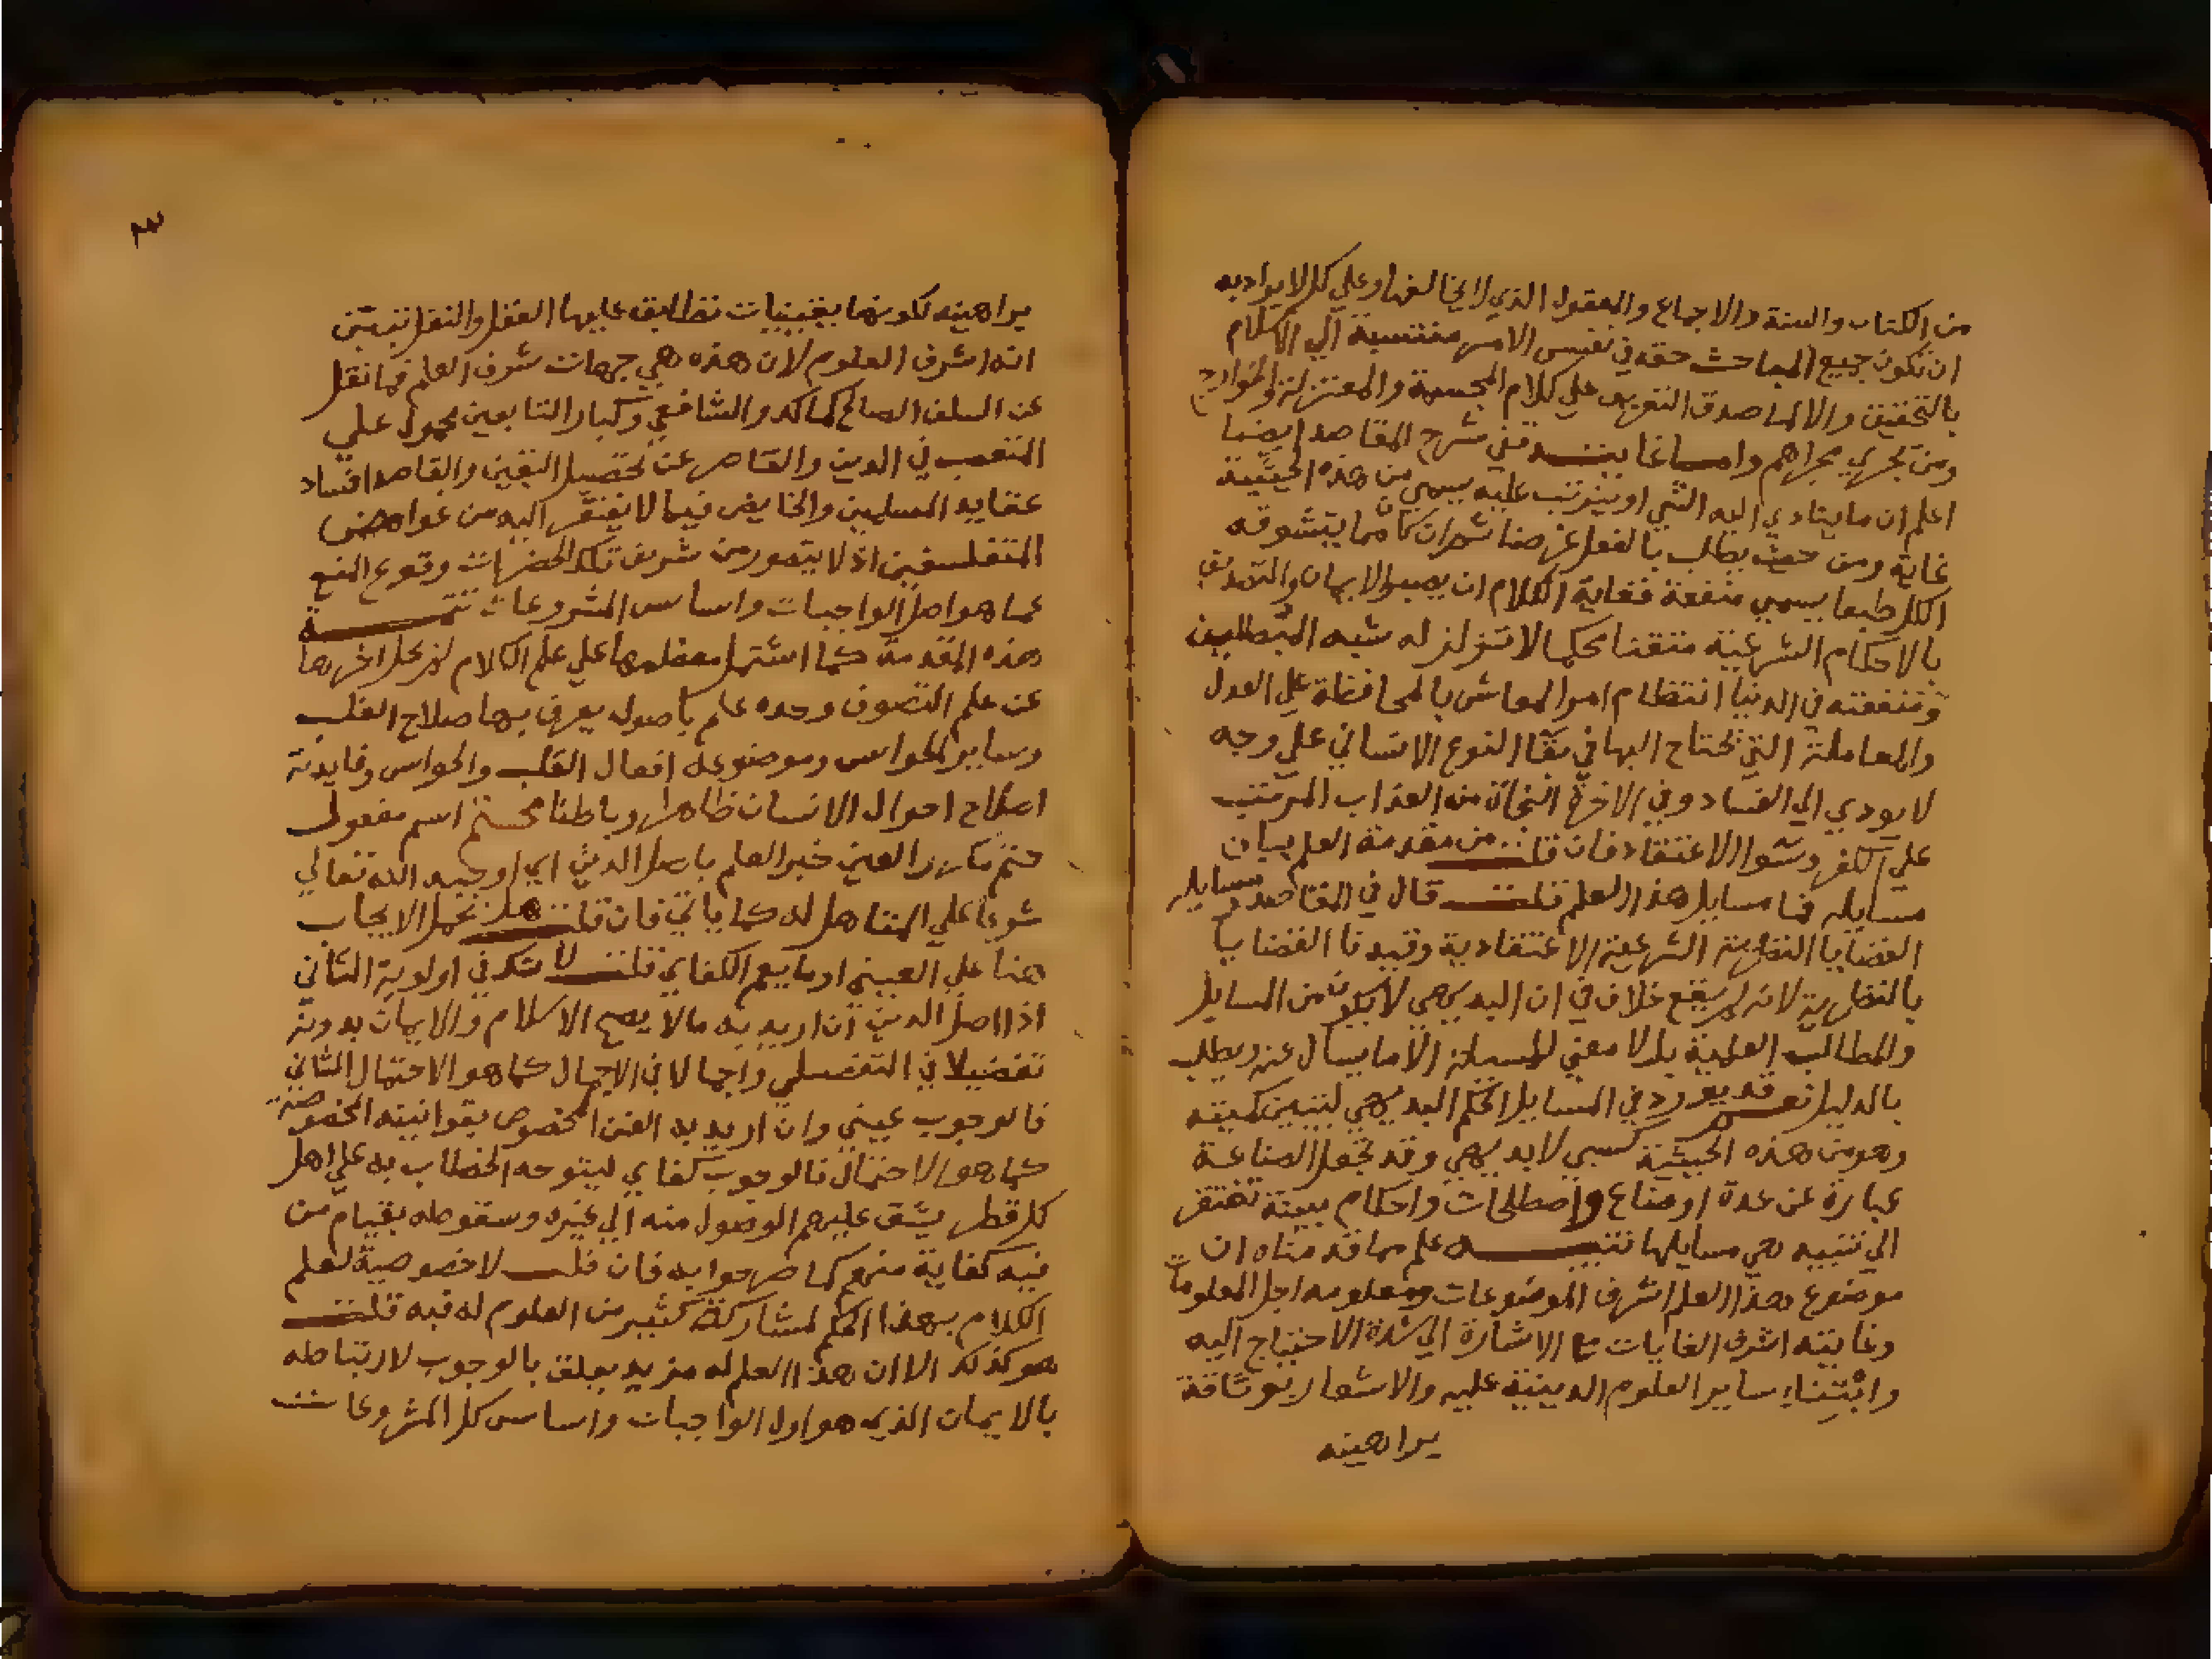 من الكتاب والسنة والاجماع والمعقول الذي لا يخالفها وعلي كل لا يراد به
ان تكون جميع المباحث حقه في نفس الامر منتسبة الي الاسلام
بالتحقيق والا لما صدق التعريف علي كلام المجسمة والمعتزلة والخوارج
ومن يجري مجراهم واما غايته ففي شرح المقاصد ايضا
اعلم ان ما يتادي اليه الشي او يترتب عليه يسمي من هذه الحيثية
غاية ومن حيث يطلب بالفعل غرضا ثم ان كان مما يتشوقه
الكل طبعا يسمي منفعة فغاية الكلام ان يصير الايمان والتصديق
بالاحكام الشرعية متقنا محكما لا تزلزله شبه المبطلين
ومنفعته في الدنيا انتظام امر المعاش بالمحافظة علي العدل
والمعاملة التي يحتاج اليها في بقا النوع الانساني علي وجه
لا يودي الي الفساد وفي الاخرة النجاة من العذاب المرتب
علي الكفر وسوا الاعتقاد فان قلت من مقدمة العلم بيان
مسايله فما مسايل هذا العلم قلت قال في المقاصد مسايله
القضايا النظرية الشرعية الاعتقادية وقيدنا القضايا
بالنظرية لانه لم يقع خلاف في ان البديهي لا يكون من المسايل
والمطالب العلمية بل لا معني للمسيلة الا ما يسال عنه ويطلب
بالدليل نعم قد يورد في المسايل الحكم البديهي ليتبين لميته
وهو من هذه الحيثية كسبي لا بديهي وقد تجعل الصناعة
عبارة عن عدة اوضاع واصطلاحات واحكام بينة تفتقر
الي تنبيه هي مسايلها تنبيه علم مما قدمناه ان
موضوع هذا العلم اشرف الموضوعات ومعلومه اجل المعلومات
وغايته اشرف الغايات مع الاشارة الي شدة الاحتياج اليه
وابْتِناءِ ساير العلوم الدينية عليه والاشعار بوثاقة
براهينه
٣
براهينه لكونها يقينيات تطابق عليها العقل والنقل تبين
انه اشرف العلوم لان هذه هي جهات شرف العلم فما نقل
عن السلف الصالح كمالك والشافعي وكبار التابعين محمول علي
المتعصب في الدين والقاصر عن تحصيل اليقين والقاصد افساد
عقايد المسلمين والخايض فيما لا يفتقر اليه من غوامض
المتفلسفين اذ لا يتصور من شريف تلك الحضرات وقوع المنع
عما هو اصل الواجبات واساس المشروعات تتمة
هذه المقدمة كما اشتمل معظمها علي علم الكلام لم يخل اخرها
عن علم التصوف وحده علم باصول يعرف بها صلاح القلب
وساير الحواس وموضوعه افعال القلب والحواس وفايدته
اصلاح احوال الانسان ظاهرا وباطنا محتم اسم مفعول
حتم مكرر العين خبر العلم باصل الدين اي اوجبه الله تعالي
شرعا علي المتاهل له كما ياتي فان قلت هل يحمل الايجاب
هنا علي العيني او ما يعم الكفاي قلت لا شك في اولوية الثاني
اذا اصل الدين ان اريد به ما لا يصح الاسلام والايمان بدونه
تفصيلا في التفصيلي واجمالا في الاجمال كما هو الاحتمال الثاني
فالوجوب عيني وان اريد به الفن المخصوص بقوانينه المخصوصة
كما هو الاحتمال فالوجوب كفاي ليتوجه الخطاب به علي اهل
كل قطر يشق عليهم الوصول منه الي غيره وسقوطه بقيام من
فيه كفاية منهم كما صرحوا به فان قلت لا خصوصية لعلم
الكلام بهذا الحكم لمشاركة كثير من العلوم له فيه قلت
هو كذلك الا ان هذا العلم له مزيد تعلق بالوجوب لارتباطه
بالايمان الذي هو اول الواجبات واساس كل المشروعات